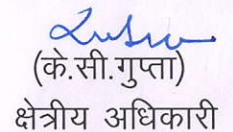 (के.सी.गुप्ता)
क्षेत्रीय अधिकारी